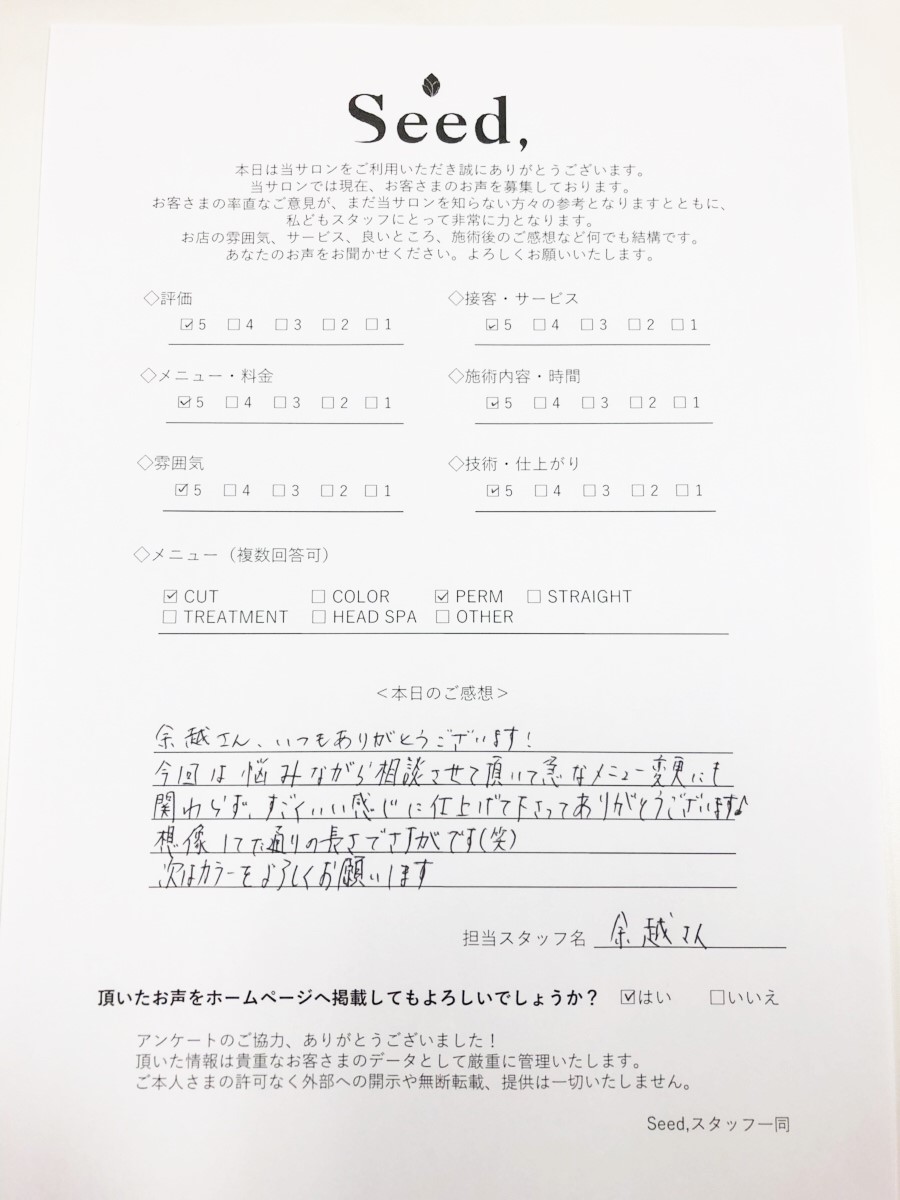 Seed,
本日は当サロンをご利用いただき誠にありがとうございます。
当サロンでは現在、お客さまのお声を募集しております。
お客さまの率直なご意見が、まだ当サロンを知らない方々の参考となりますとともに、
私どもスタッフにとって非常に力となります。
お店の雰囲気、サービス、良いところ、施術後のご感想など何でも結構です。
あなたのお声をお聞かせください。よろしくお願いいたします。
◇評価
☑5 □4 □3 □2 □1
◇接客・サービス
☑5 □4 □3 □2 □1
◇メニュー・料金
☑5 □4 □3 □2 □1
◇施術内容・時間
☑5 □4 □3 □2 □1
◇雰囲気
☑5 □4 □3 □2 □1
◇技術・仕上がり
☑5 □4 □3 □2 □1
◇メニュー（複数回答可）
☑ CUT □ COLOR ☑ PERM □ STRAIGHT
□ TREATMENT □ HEAD SPA □ OTHER
＜本日のご感想＞
余越さん、いつもありがとうございます!
今回は悩みながら相談させて頂いて急なメニュー変更にも
関わらず、すごくいい感じに仕上げて下さってありがとうございます♪
想像してた通りの長さでさすがです(笑)
次はカラーをよろしくお願いします
担当スタッフ名 余越さん
頂いたお声をホームページへ掲載してもよろしいでしょうか？ ☑はい □いいえ
アンケートのご協力、ありがとうございました！
頂いた情報は貴重なお客さまのデータとして厳重に管理いたします。
ご本人さまの許可なく外部への開示や無断転載、提供は一切いたしません。
Seed,スタッフ一同